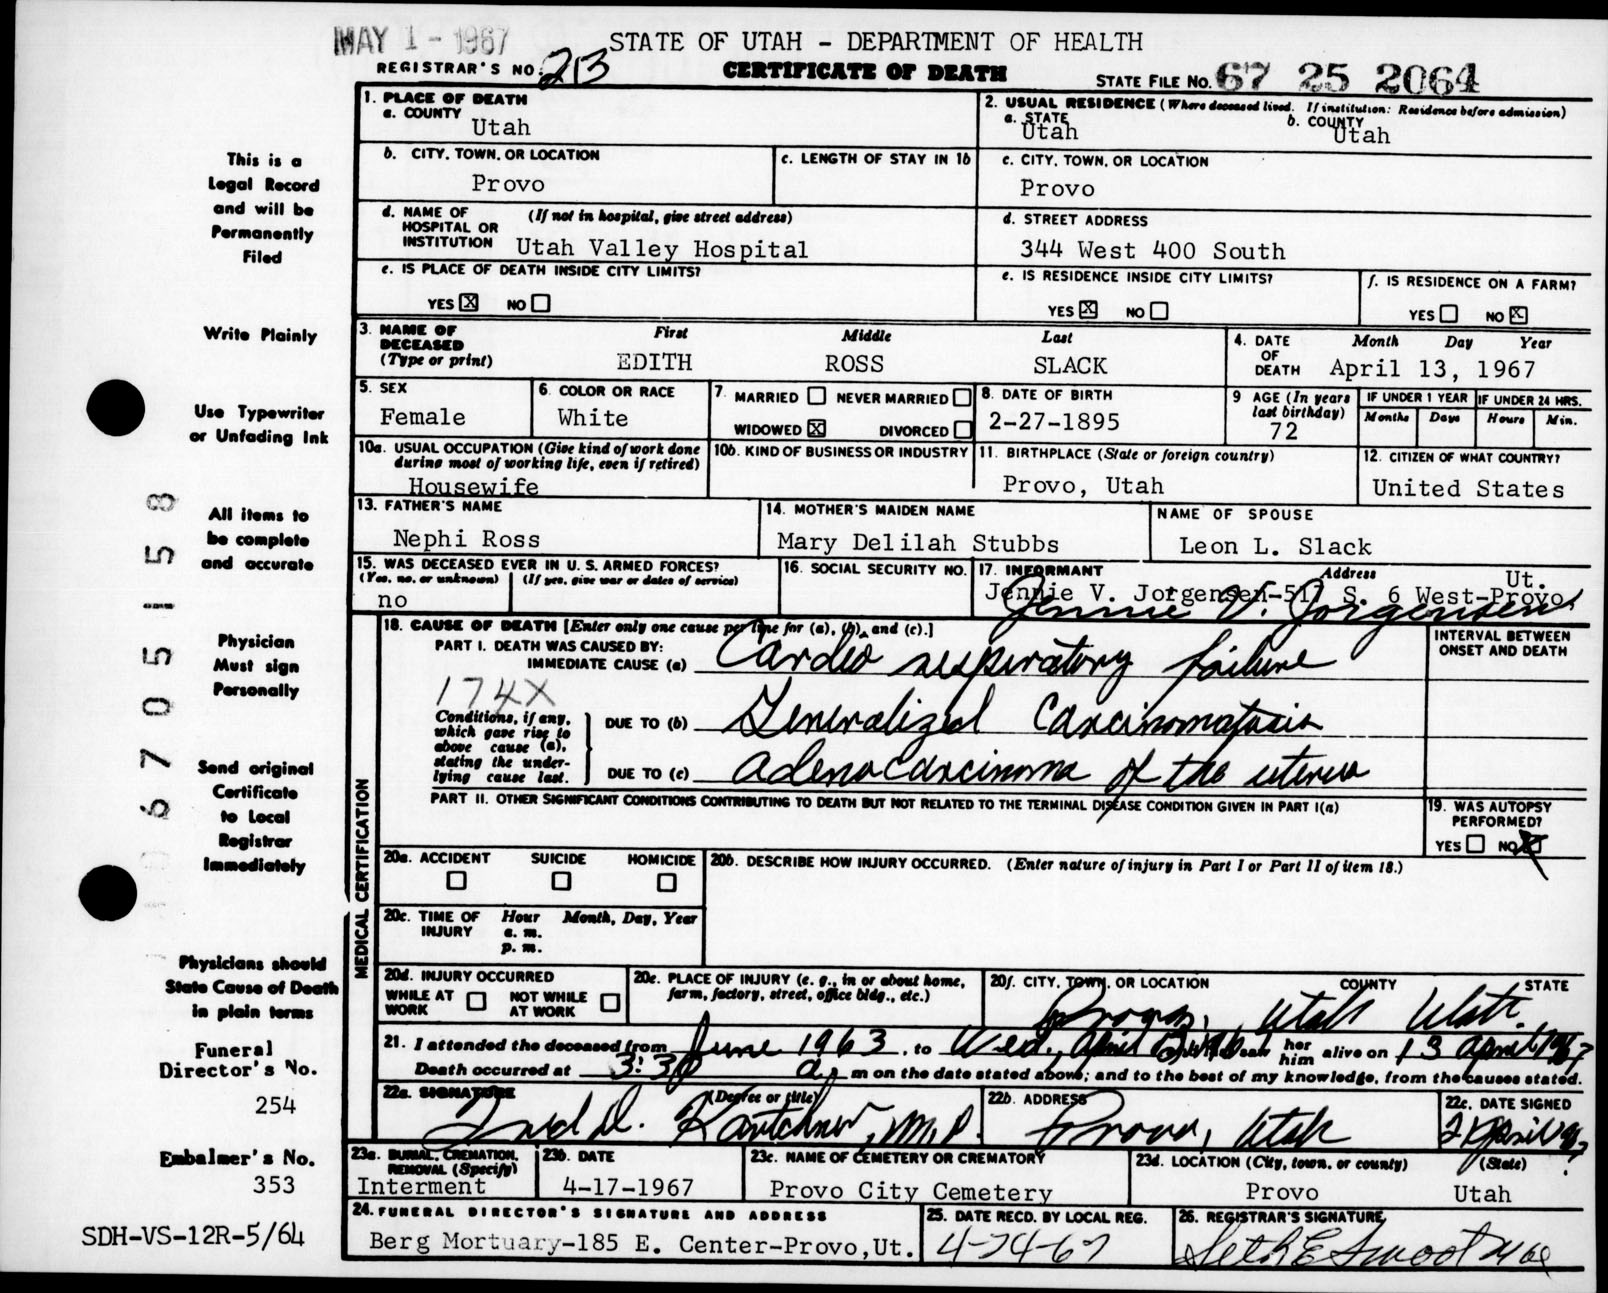 MAY 1 - 1967
STATE OF UTAH - DEPARTMENT OF HEALTH
REGISTRAR'S NO. 213
CERTIFICATE OF DEATH
STATE FILE NO. 67 25 2064
This is a
Legal Record
and will be
Permanently
Filed
Write Plainly
Use Typewriter
or Unfading Ink
All items to
be complete
and accurate
Physician
Must sign
Personally
Send original
Certificate
to Local
Registrar
Immediately
Physicians should
State Cause of Death
in plain terms
Funeral
Director's No.
254
Embalmer's No.
353
SDH-VS-12R-5/64
1. PLACE OF DEATH
a. COUNTY
Utah
2. USUAL RESIDENCE (Where deceased lived. If institution: Residence before admission)
a. STATE
Utah
b. COUNTY
Utah
b. CITY, TOWN, OR LOCATION
Provo
c. LENGTH OF STAY IN 1b
c. CITY, TOWN, OR LOCATION
Provo
d. NAME OF HOSPITAL OR INSTITUTION (If not in hospital, give street address)
Utah Valley Hospital
d. STREET ADDRESS
344 West 400 South
e. IS PLACE OF DEATH INSIDE CITY LIMITS?
YES X NO
e. IS RESIDENCE INSIDE CITY LIMITS?
YES X NO
f. IS RESIDENCE ON A FARM?
YES NO X
3. NAME OF DECEASED (Type or print)
First Middle Last
EDITH ROSS SLACK
4. DATE OF DEATH
Month Day Year
April 13, 1967
5. SEX
Female
6. COLOR OR RACE
White
7. MARRIED NEVER MARRIED
WIDOWED X DIVORCED
8. DATE OF BIRTH
2-27-1895
9 AGE (In years last birthday)
72
IF UNDER 1 YEAR
Months Days
IF UNDER 24 HRS.
Hours Min.
10a. USUAL OCCUPATION (Give kind of work done during most of working life, even if retired)
Housewife
10b. KIND OF BUSINESS OR INDUSTRY
11. BIRTHPLACE (State or foreign country)
Provo, Utah
12. CITIZEN OF WHAT COUNTRY?
United States
13. FATHER'S NAME
Nephi Ross
14. MOTHER'S MAIDEN NAME
Mary Delilah Stubbs
NAME OF SPOUSE
Leon L. Slack
15. WAS DECEASED EVER IN U. S. ARMED FORCES?
(Yes, no, or unknown) (If yes, give war or dates of service)
no
16. SOCIAL SECURITY NO.
17. INFORMANT Address
Jennie V. Jorgensen-517 S. 6 West-Provo, Ut.
Jennie V. Jorgensen
18. CAUSE OF DEATH [Enter only one cause per line for (a), (b), and (c).]
INTERVAL BETWEEN ONSET AND DEATH
PART I. DEATH WAS CAUSED BY:
IMMEDIATE CAUSE (a) Cardio respiratory failure
174X
Conditions, if any, which gave rise to above cause (a), stating the underlying cause last.
DUE TO (b) Generalized Carcinomatosis
DUE TO (c) Adenocarcinoma of the uterus
PART II. OTHER SIGNIFICANT CONDITIONS CONTRIBUTING TO DEATH BUT NOT RELATED TO THE TERMINAL DISEASE CONDITION GIVEN IN PART I(a)
19. WAS AUTOPSY PERFORMED?
YES NO X
MEDICAL CERTIFICATION
20a. ACCIDENT SUICIDE HOMICIDE
20b. DESCRIBE HOW INJURY OCCURRED. (Enter nature of injury in Part I or Part II of item 18.)
20c. TIME OF INJURY Hour Month, Day, Year
a. m.
p. m.
20d. INJURY OCCURRED
WHILE AT WORK NOT WHILE AT WORK
20e. PLACE OF INJURY (e. g., in or about home, farm, factory, street, office bldg., etc.)
20f. CITY, TOWN, OR LOCATION COUNTY STATE
Provo, Utah Utah.
21. I attended the deceased from June 1963, to Wed., April saw her him alive on 13 April 1967
Death occurred at 3:30 a. m on the date stated above; and to the best of my knowledge, from the causes stated.
22a. SIGNATURE (Degree or title)
M.D.
22b. ADDRESS
Provo, Utah
22c. DATE SIGNED
23a. BURIAL, CREMATION, REMOVAL (Specify)
Interment
23b. DATE
4-17-1967
23c. NAME OF CEMETERY OR CREMATORY
Provo City Cemetery
23d. LOCATION (City, town, or county) (State)
Provo Utah
24. FUNERAL DIRECTOR'S SIGNATURE AND ADDRESS
Berg Mortuary-185 E. Center-Provo,Ut.
25. DATE RECD. BY LOCAL REG.
4-24-67
26. REGISTRAR'S SIGNATURE